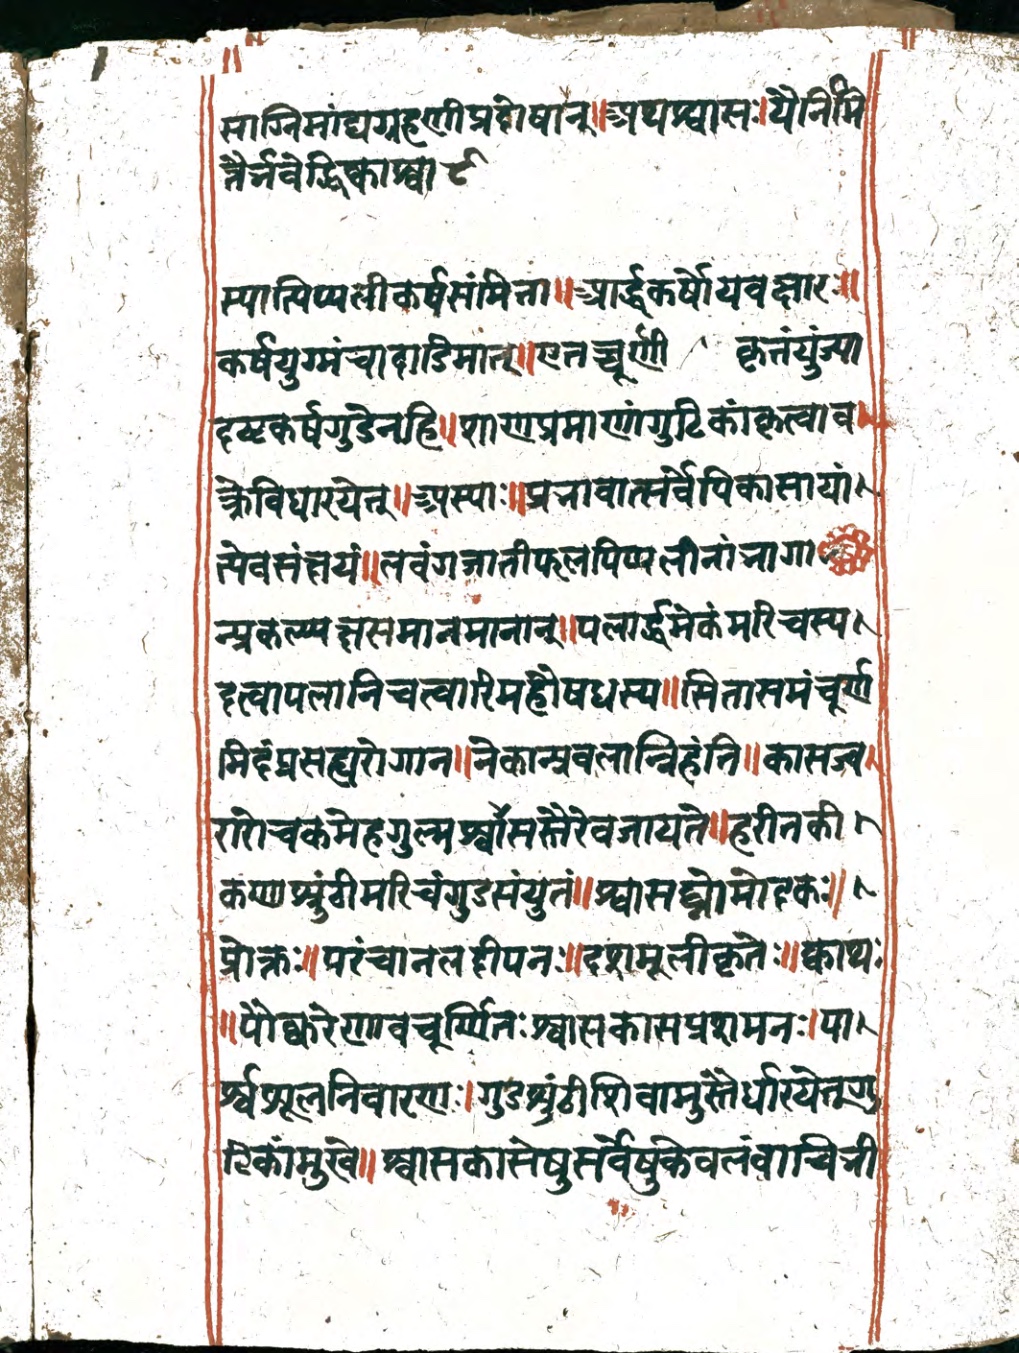 साग्निमांद्यग्रहणीप्रदोषान्॥अथश्वासः।यैर्निमि
त्तैर्भवेद्धिक्काश्वा
स्यात्पिप्पलीकर्षसंमिता॥आर्द्धकर्षोयवक्षारः॥
कर्षयुग्मंचादाडिमात्॥एतच्चूर्णी कृतंयुंज्या
दष्टकर्षगुडेनहि॥शाणप्रमाणंगुटिकांकृत्वाव
क्रेविधारयेत्॥अस्याः॥प्रभावात्सर्वेपिकासायां
त्येवसंक्षयं॥लवंगजातीफलपिप्पलीनांभागा
न्प्रकल्प्याक्षसमानमानान्॥पलार्द्धमेकंमरिचस्य
दत्वापलानिचत्वारिमहौषधस्य॥सितासमंचूर्ण
मिदंप्रसह्यरोगान॥नेकान्प्रबलान्निहंति॥कासज्व
रारोचकमेहगुल्मश्वासस्तैरेवजायते॥हरीतकी
कणाशुंठीमरिचंगुडसंयुतं॥श्वासघ्नोमोदकः॥
प्रोक्तः॥परंचानलदीपनः॥दशमूलीकृतेः॥क्वाथः
॥पौष्करेणवचूर्णितःश्वासकासप्रशमनः।पा
र्श्वशूलनिवारणः।गुडशुंठीशिवामुस्तैर्धारयेत्गु
टिकांमुखे॥श्वासकासेषुसर्वेषुकेवलंवाबिभी